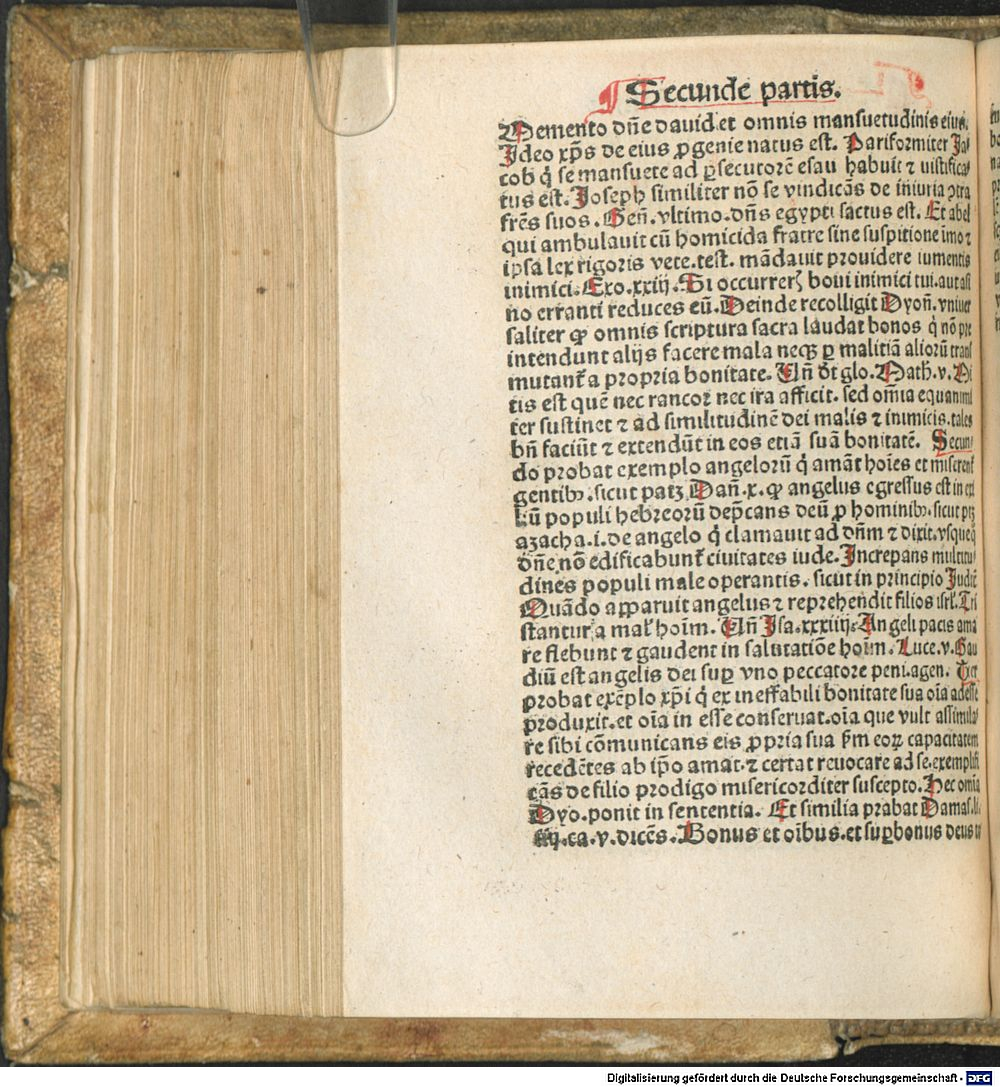 Secunde partis.
Memento dñe dauid.et omnis mansuetudinis eius.
Ideo xp̄s de eius ꝓgenie natus est. Pariformiter Ja⸗
cob q̇ se mansuete ad ꝑsecutorē esau habuit ⁊ uistifica⸗
tus est. Joseph similiter nō se vindicās de iniuria ꝯtra
frēs suos. Geñ. vltimo.dñs egypti factus est. Et abel
qui ambulauit cū homicida fratre sine suspitione īmo ⁊
ipsa lex rigoris vete.test. mādauit prouidere iumentis
inimici. Exo.xxiij. Si occurrerꝭ boui inimici tui.aut asi
no erranti reduces eū. Deinde recolligit Dyoñ. vniuer
saliter ꝙ omnis scriptura sacra laudat bonos q̇ nō pre
intendunt alijs facere mala neqꝫ ꝑ malitiā aliorū trans
mutant̄ a propria bonitate. Uñ dt̄ glo. Math̄.v. Mi
tis est quē nec rancor nec ira afficit. sed om̄ia equanimi
ter sustinet ⁊ ad similitudinē dei malis ⁊ inimicis.tales
bn̄ faciūt ⁊ extendūt in eos etiā suā bonitatē. Secun⸗
do probat exemplo angelorū q̇ amāt hoīes et miserent̄
gentibꝫ.sicut patꝫ Dañ.x. ꝙ angelus egressus est in
populi hebreorū dep̄cans deū ꝓ hominibꝫ.sicut ptꝫ
azacha.i.de angelo q̇ clamauit ad dñm ⁊ dixit.vsqueq̇
dñe nō edificabunt̄ ciuitates iude. Increpans multitu⸗
dines populi male operantis. sicut in principio Judic̄
Quādo apparuit angelus ⁊ reprehendit filios isrl̄. Tri
stantur a mal̄ hoīm. Uñ Isa.xxxiiij. Angeli pacis ama
re flebunt ⁊ gaudent in salutatiōe hoīm. Luce.v. Gau
diū est angelis dei suꝑ vno peccatore peni.agen. Tert
probat exēplo xp̄i q̇ ex ineffabili bonitate sua oīa adesse
produxit.et oīa in esse conseruat.oīa que vult assimila⸗
re sibi cōmunicans eis ꝓpria sua ẜm eoꝝ capacitatem
recedētes ab ip̄o amat.⁊ certat reuocare ad se.exemplifi
cās de filio prodigo misericorditer suscepto. Hec omīa
Dyo.ponit in sententia. Et similia probat Damas.li.
iiij.ca.v.dicēs. Bonus et oībus.et suꝑbonus deus
Digitalisierung gefördert durch die Deutsche Forschungsgemeinschaft - DFG